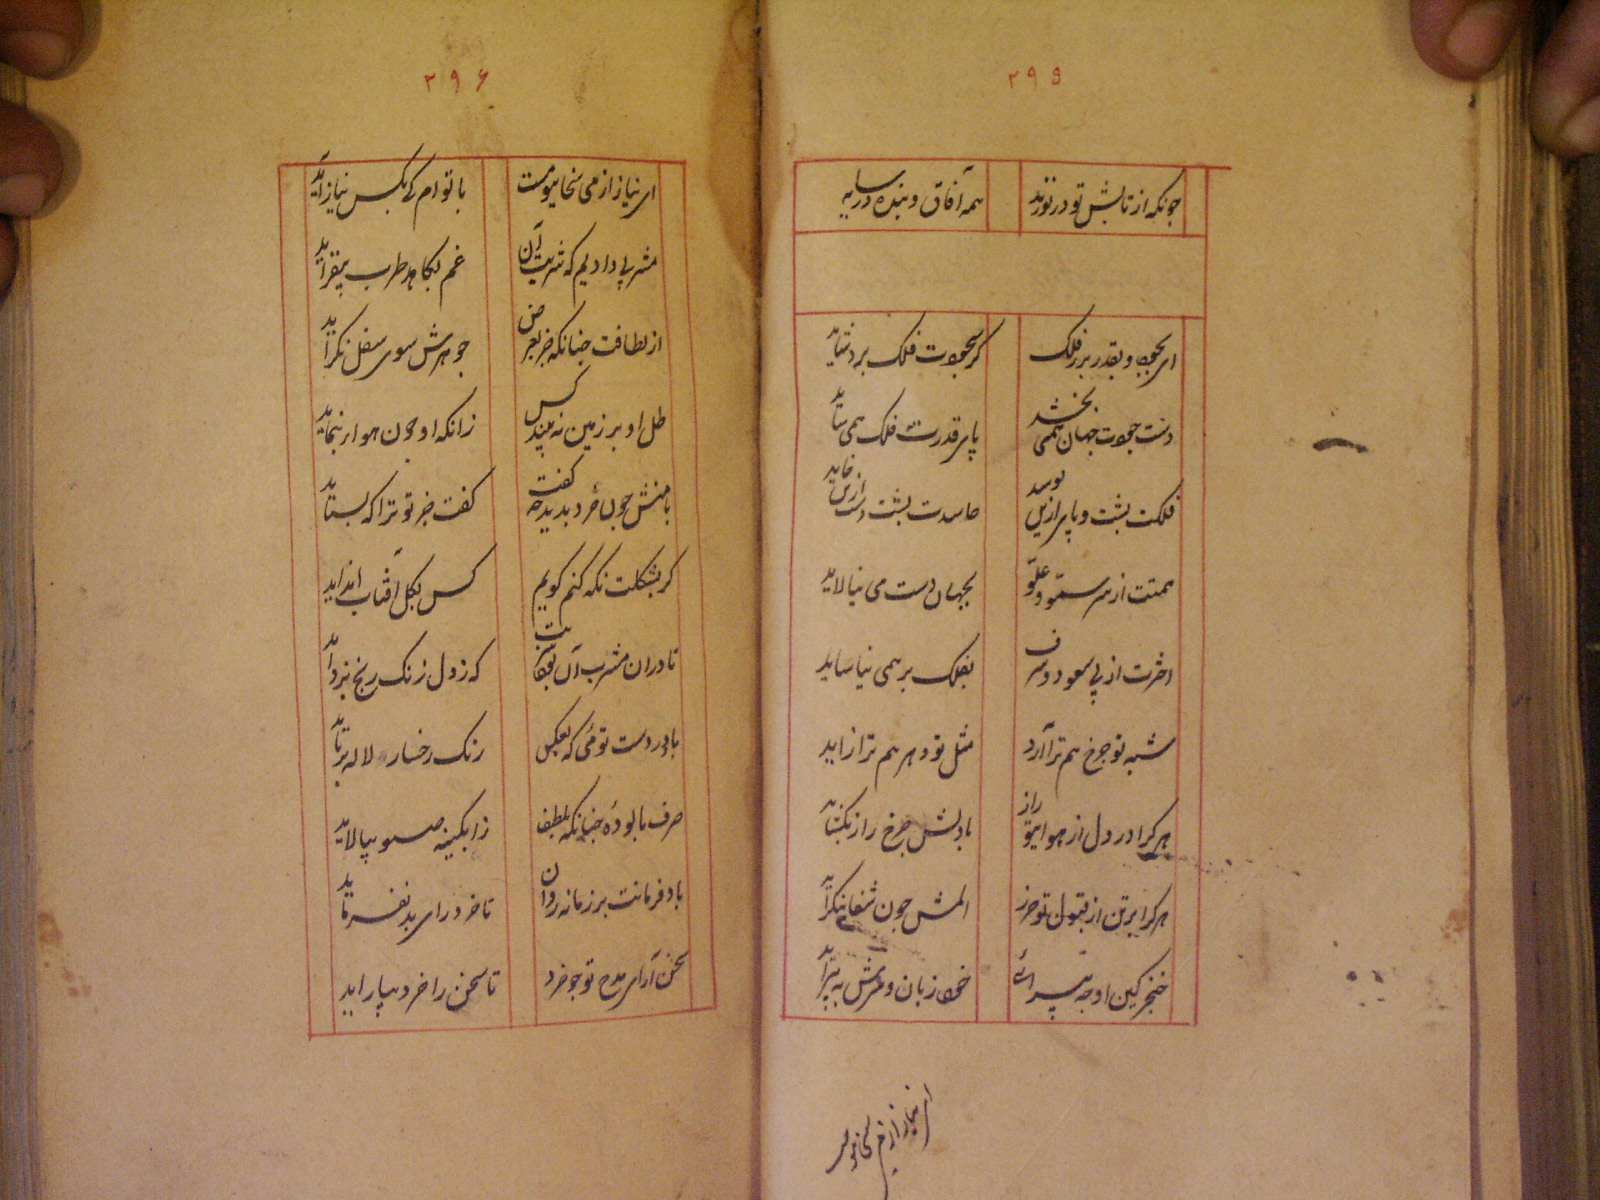 ۲۹۵
چونکه از تابش تو در نورند همه آفاق و بنده در سایه
ای بجود و بقدر برز فلک کر سجودت فلک برد شاید
دست جودت جهان همی بخشد پای قدرت فلک همی ساید
فلکت پشت و پای ازین بوسد حاسدت پشت دست ازین خاید
همتت از سر سمو و علو بجهان دست می نیالاید
اخترت از پی سعود و شرف بفلک بر همی نیاساید
شبه تو چرخ هم ترا آرد مثل تو دهر هم ترا زاید
هر کرا در دل از هوای تو راز بادلش چرخ راز نکشاید
هر کرا بر تن از قبول تو حرز المش چون شفا بنکزاید
خنجر کین او چه پیرائے خود زبان و سرش به پیراید
ای نیاز از می سخا
۲۹۶
ای نیاز از می سخا با توام کے بکس نیاز آید
مشربی دادیم که شربت آن غم بکاهد طرب بیفزاید
از لطافت چنانکه جز بعرض جوهرش سوی سفل نکراید
ظل او بر زمین نه بیند کس زانکه او چون هوا بننماید
با منش چون خرد بدید چه گفت کفت جز تو ترا که بستاید
کر بشکلت نکه کنم کویم کس بکل آفتاب انداید
تا دران مشرب آن بود که ز دل زنک رنج بزداید
باد در دست تو مئی که بعکس رنک رخسار لاله برباید
صرف پالوده چنانکه بلطف ز آبکینه صبو بپالاید
باد فرمانت بر زمانه روان تا خرد رای بد نفرماید
سخن آرای مدح تو چو خرد تا سخن را خرد بیاراید